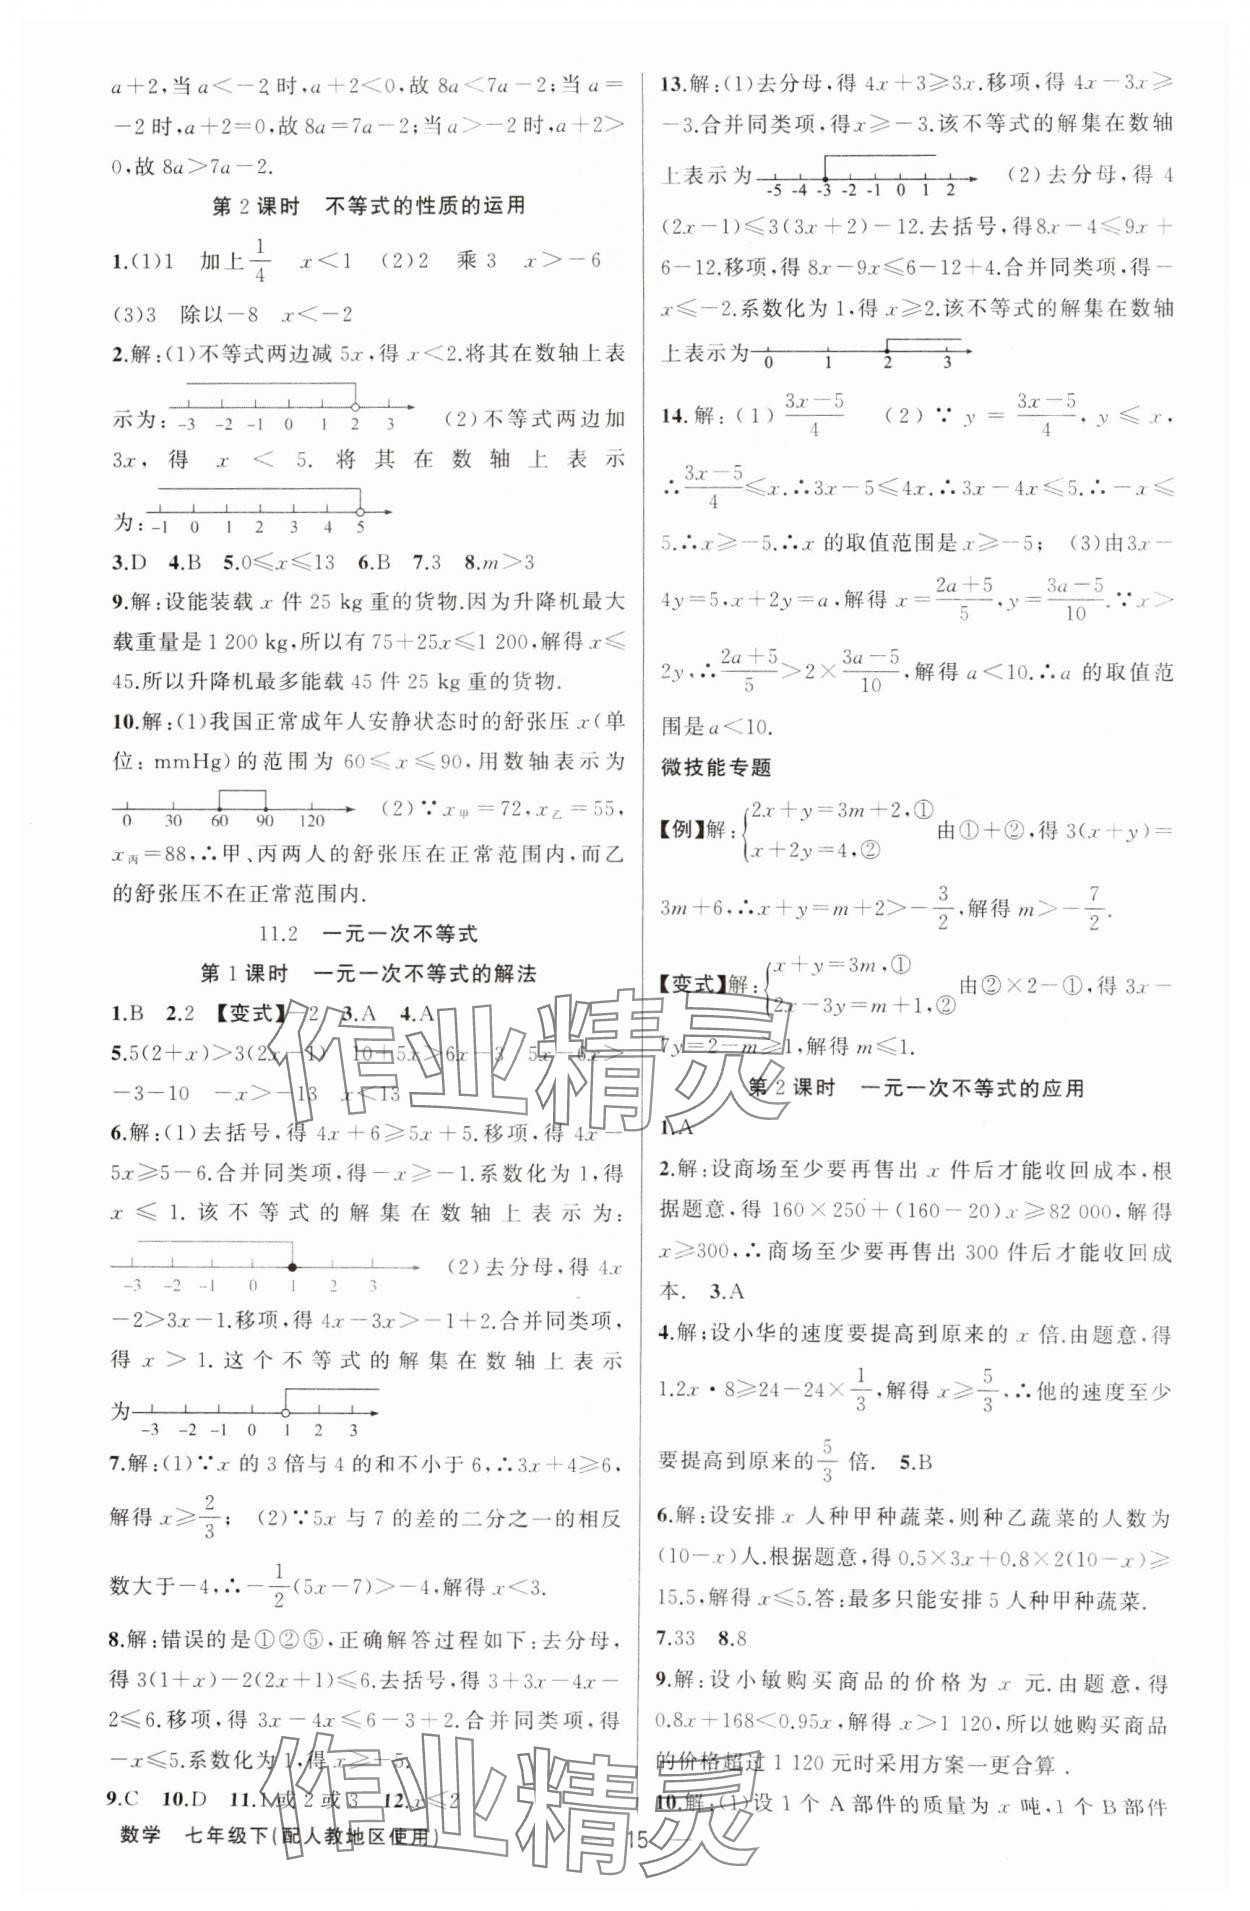 a+2,当a<-2时,a+2<0,故8a<7a-2;当a=
-2时,a+2=0,故8a=7a-2;当a>-2时,a+2>
0,故8a>7a-2.
第2课时 不等式的性质的运用
1.(1)1 加上1/4 x<1 (2)2 乘3 x>-6
(3)3 除以-8 x<-2
2.解:(1)不等式两边减5x,得x<2.将其在数轴上表
示为: -3 -2 -1 0 1 2 3 (2)不等式两边加
3x,得x<5.将其在数轴上表示
为: -1 0 1 2 3 4 5
3.D 4.B 5.0≤x≤13 6.B 7.3 8.m>3
9.解:设能装载x件25 kg重的货物.因为升降机最大
载重量是1 200 kg,所以有75+25x≤1 200,解得x≤
45.所以升降机最多能载45件25 kg重的货物.
10.解:(1)我国正常成年人安静状态时的舒张压x(单
位:mmHg)的范围为60≤x≤90,用数轴表示为
0 30 60 90 120 (2)∵x甲=72,x乙=55,
x丙=88,∴甲、丙两人的舒张压在正常范围内,而乙
的舒张压不在正常范围内.
11.2 一元一次不等式
第1课时 一元一次不等式的解法
1.B 2.2 【变式】-2 3.A 4.A
5.5(2+x)>3(2x-1) 10+5x>6x-3 5x-6x>
-3-10 -x>-13 x<13
6.解:(1)去括号,得4x+6≥5x+5.移项,得4x-
5x≥5-6.合并同类项,得-x≥-1.系数化为1,得
x≤1.该不等式的解集在数轴上表示为:
-3 -2 -1 0 1 2 3 (2)去分母,得4x
-2>3x-1.移项,得4x-3x>-1+2.合并同类项,
得x>1.这个不等式的解集在数轴上表示
为 -3 -2 -1 0 1 2 3
7.解:(1)∵x的3倍与4的和不小于6,∴3x+4≥6,
解得x≥2/3; (2)∵5x与7的差的二分之一的相反
数大于-4,∴-1/2(5x-7)>-4,解得x<3.
8.解:错误的是①②⑤,正确解答过程如下:去分母,
得3(1+x)-2(2x+1)≤6.去括号,得3+3x-4x-
2≤6.移项,得3x-4x≤6-3+2.合并同类项,得
-x≤5.系数化为1,得x≥-5.
9.C 10.D 11.1或2或3 12.x≤2
13.解:(1)去分母,得4x+3≥3x.移项,得4x-3x≥
-3.合并同类项,得x≥-3.该不等式的解集在数轴
上表示为 -5 -4 -3 -2 -1 0 1 2 (2)去分母,得4
(2x-1)≤3(3x+2)-12.去括号,得8x-4≤9x+
6-12.移项,得8x-9x≤6-12+4.合并同类项,得-
x≤-2.系数化为1,得x≥2.该不等式的解集在数轴
上表示为 0 1 2 3
14.解:(1)(3x-5)/4 (2)∵y=(3x-5)/4,y≤x,
∴(3x-5)/4≤x.∴3x-5≤4x.∴3x-4x≤5.∴-x≤
5.∴x≥-5.∴x的取值范围是x≥-5; (3)由3x-
4y=5,x+2y=a,解得x=(2a+5)/5,y=(3a-5)/10.∵x>
2y,∴(2a+5)/5>2×(3a-5)/10,解得a<10.∴a的取值范
围是a<10.
微技能专题
【例】解:{2x+y=3m+2,① x+2y=4,② 由①+②,得3(x+y)=
3m+6,∴x+y=m+2>-3/2,解得m>-7/2.
【变式】解:{x+y=3m,① 2x-3y=m+1,② 由②×2-①,得3x-
7y=2-m≥1,解得m≤1.
第2课时 一元一次不等式的应用
1.A
2.解:设商场至少要再售出x件后才能收回成本,根
据题意,得160×250+(160-20)x≥82 000,解得
x≥300,∴商场至少要再售出300件后才能收回成
本. 3.A
4.解;设小华的速度要提高到原来的x倍.由题意,得
1.2x·8≥24-24×1/3,解得x≥5/3,∴他的速度至少
要提高到原来的5/3倍. 5.B
6.解:设安排x人种甲种蔬菜,则种乙蔬菜的人数为
(10-x)人.根据题意,得0.5×3x+0.8×2(10-x)≥
15.5,解得x≤5.答:最多只能安排5人种甲种蔬菜.
7.33 8.8
9.解:设小敏购买商品的价格为x元.由题意,得
0.8x+168<0.95x,解得x>1 120,所以她购买商品
的价格超过1 120元时采用方案一更合算.
10.解:(1)设1个A部件的质量为x吨,1个B部件
数学 七年级下(配人教地区使用)
15
作业精灵
作业精灵